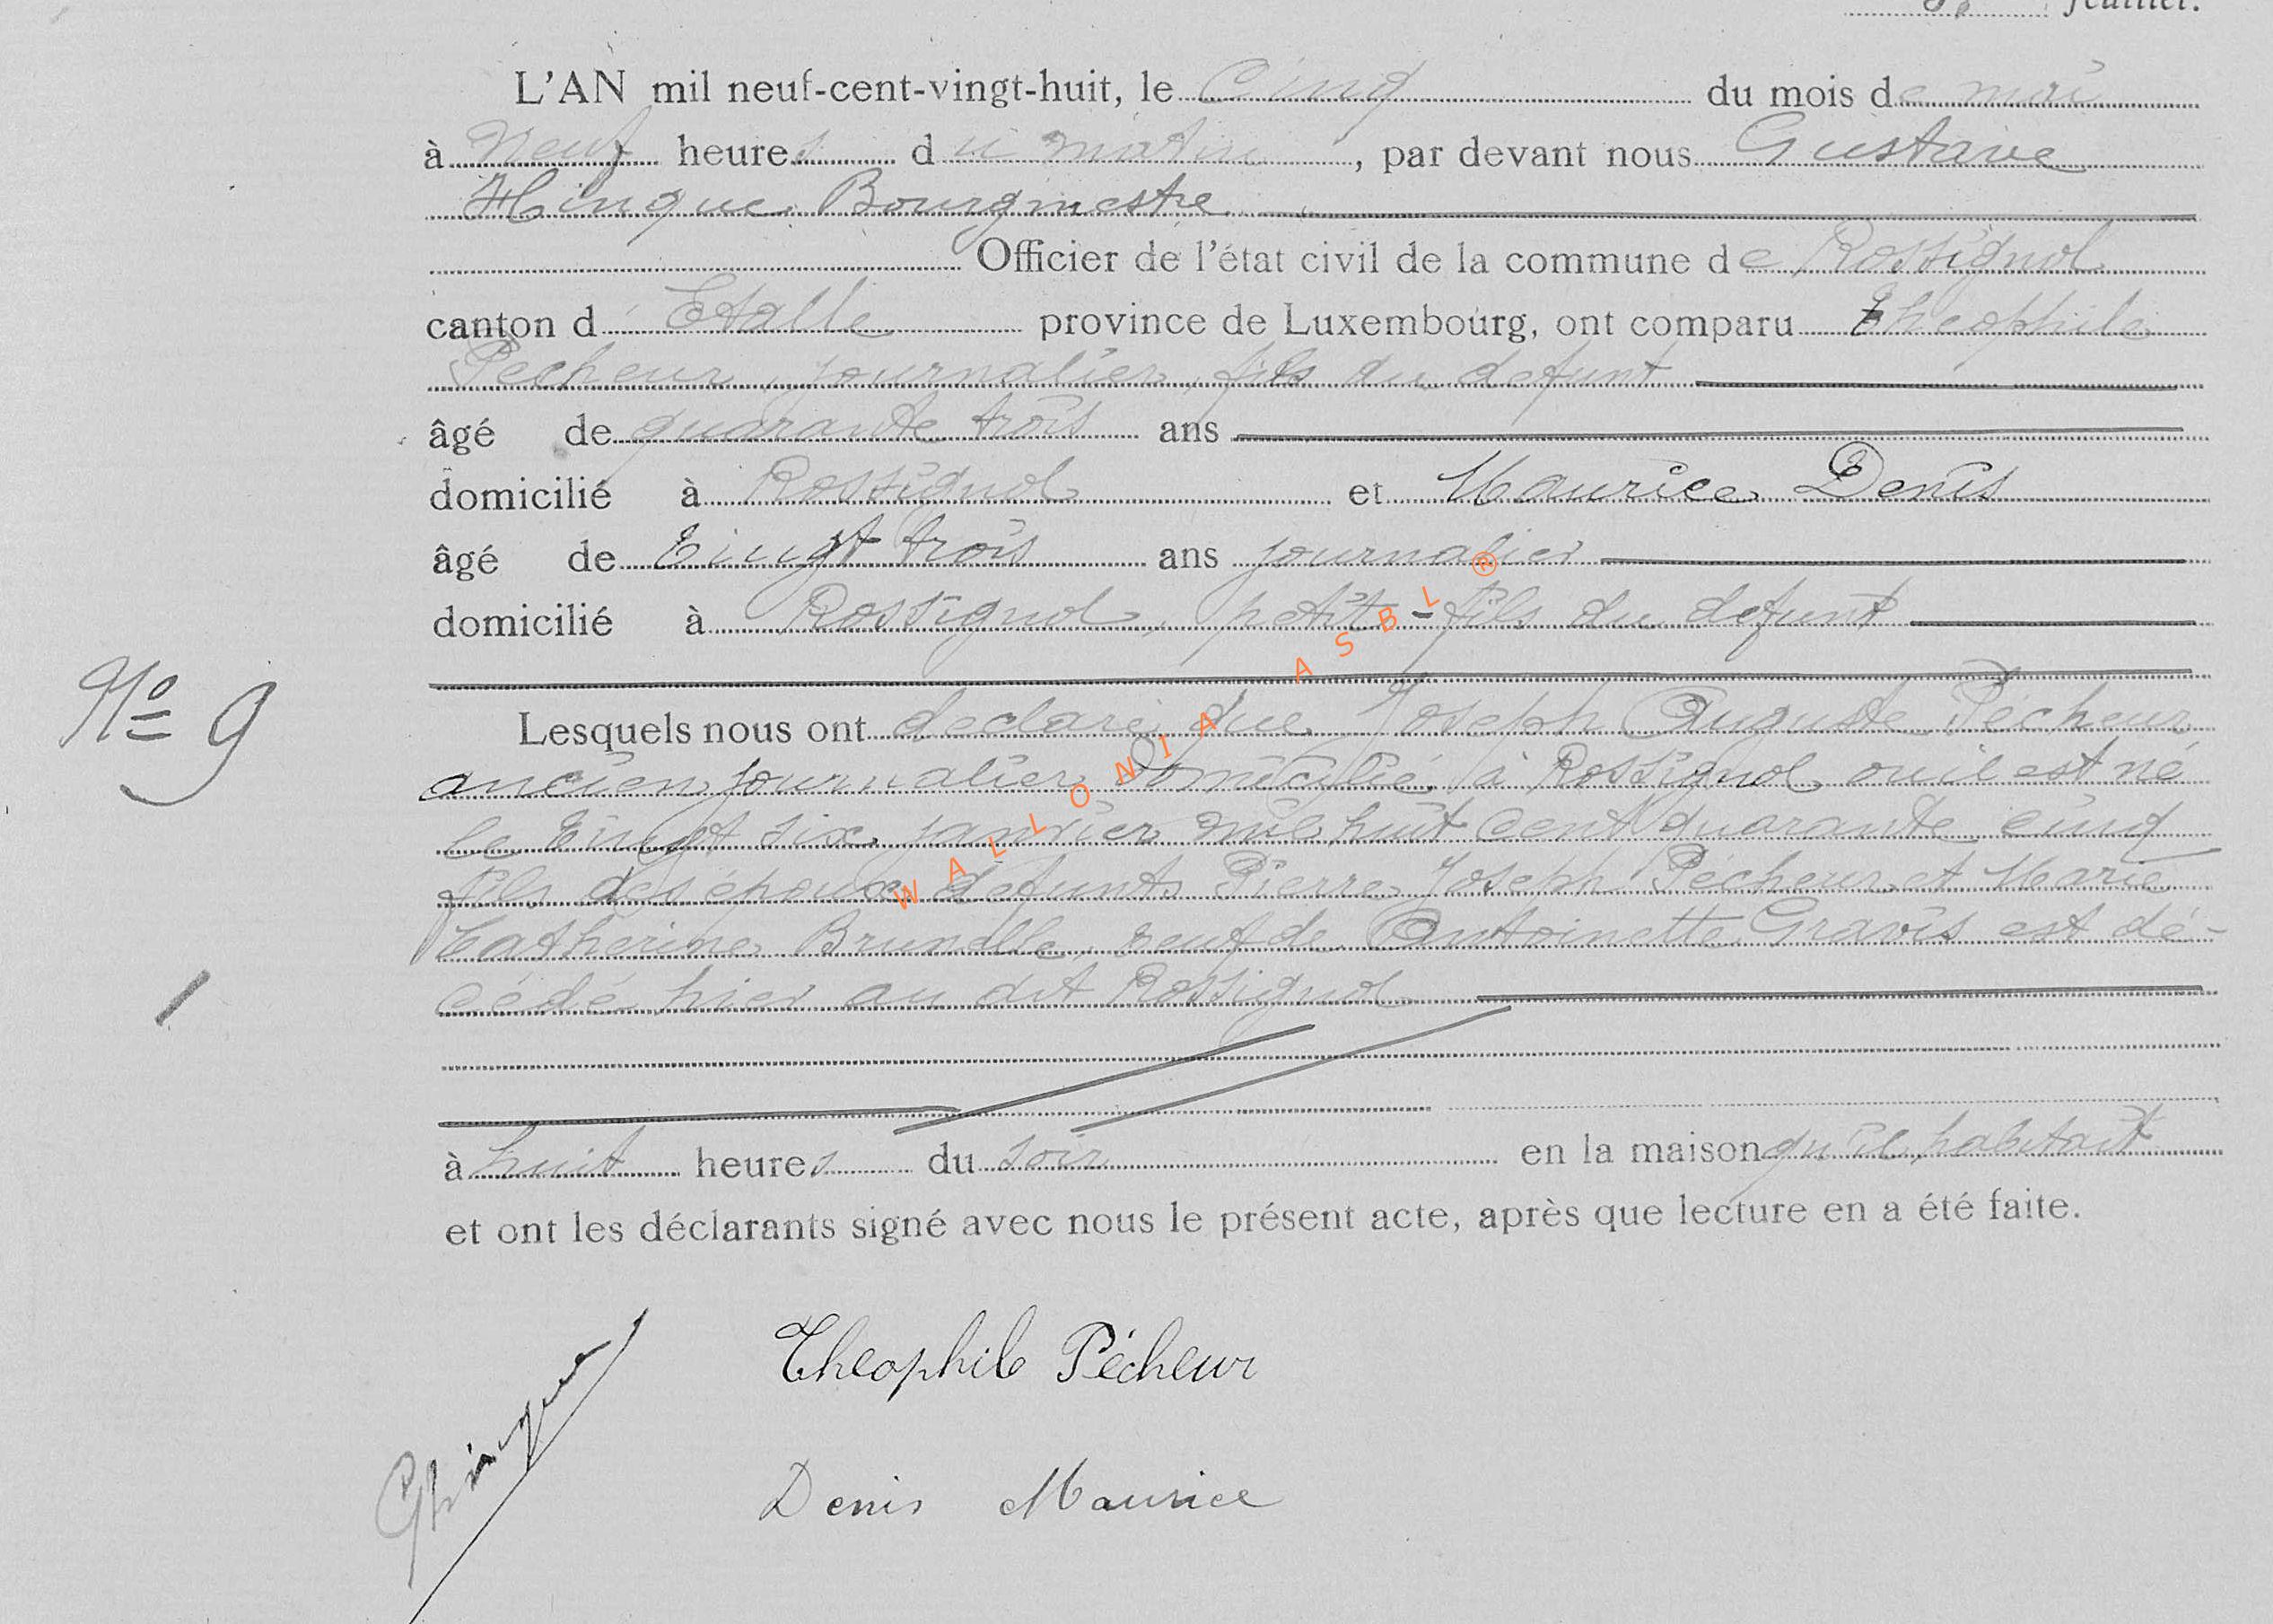 feuillet.
L'AN mil neuf-cent-vingt-huit, le Cinq du mois de mai
à Neuf heures du matin, par devant nous Gustave
Hinque Bourgmestre
Officier de l'état civil de la commune de Rossignol
canton d'Etalle province de Luxembourg, ont comparu Théophile
Pécheur, journalier, fils du defunt
âgé de quarante trois ans
domicilié à Rossignol et Maurice Denis
âgé de Vingt trois ans journalier
domicilié à Rossignol, petit-fils du defunt
Nº 9
Lesquels nous ont declaré que Joseph Auguste Pécheur
ancien journalier domicilié à Rossignol où il est né
le Vingt six janvier mil huit cent quarante cinq
fils des époux défunts Pierre Joseph Pécheur et Marie
Catherine Brunelle, veuf de Antoinette Gravis est dé-
cédé hier au dit Rossignol
à huit heures du soir en la maison qu'il habitait
et ont les déclarants signé avec nous le présent acte, après que lecture en a été faite.
Théophile Pécheur
GHinque
Denis Maurice
WALLONIA ASBL ®